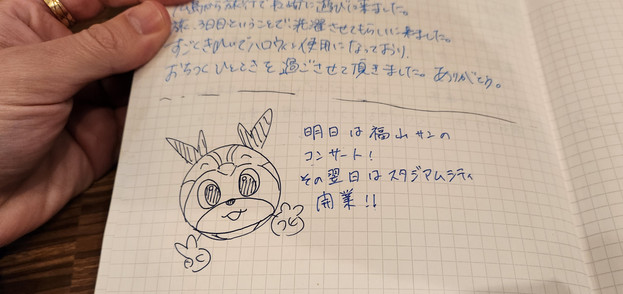 広島から旅行で長崎に遊びに来ました。
旅、3日目ということで洗濯させてもらいに来ました。
すごくきれいでハロウィン使用になっており、
おちつくひとときを過ごさせて頂きました。ありがとう。
明日は福山サンの
コンサート!
その翌日はスタジアムシティ
開業!!